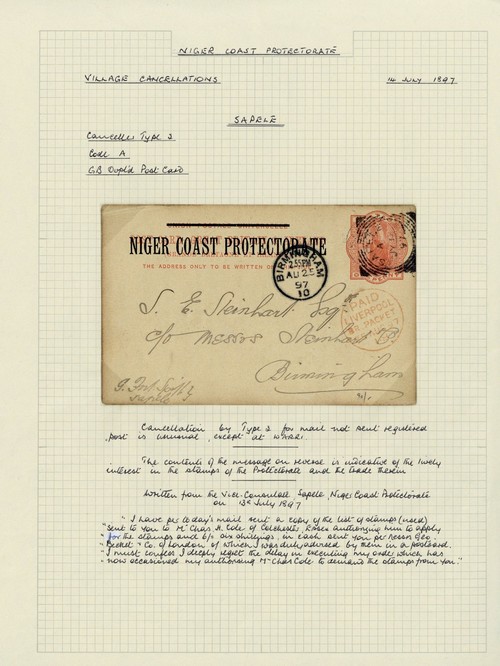 NIGER COAST PROTECTORATE
VILLAGE CANCELLATIONS
14 JULY 1897
SAPELE
Canceller Type 2
Code A
GB Ovptd Post Card
NIGER COAST PROTECTORATE
THE ADDRESS ONLY TO BE WRITTEN
BIRMINGHAM
2.55PM
AU 25
97
10
PAID
LIVERPOOL
BR. PACKET
S. E. Steinhart Esq
c/o Messrs Steinhart
Birmingham
Sapele
Cancellation by Type 2 for mail not sent registered
post is unusual, except at WARRI.
The contents of the message on reverse is indicative of the lively
interest in the stamps of the Protectorate and the trade therein
Written from the Vice-Consulate Sapele Niger Coast Protectorate
on 13th July 1897
"I have per today's mail sent a copy of the list of stamps (used)
"sent to you to Mr Chas H. Cole of Colchester, Essex authorizing him to apply
"for the stamps and b/o six shillings in cash sent you per Messrs Geo.
"Becket & Co. of London of which I was duly advised by them in a postcard.
"I must confess I deeply regret the delay in executing my order which has
"now occasioned my authorising Mr Chas Cole to demand the stamps from you."